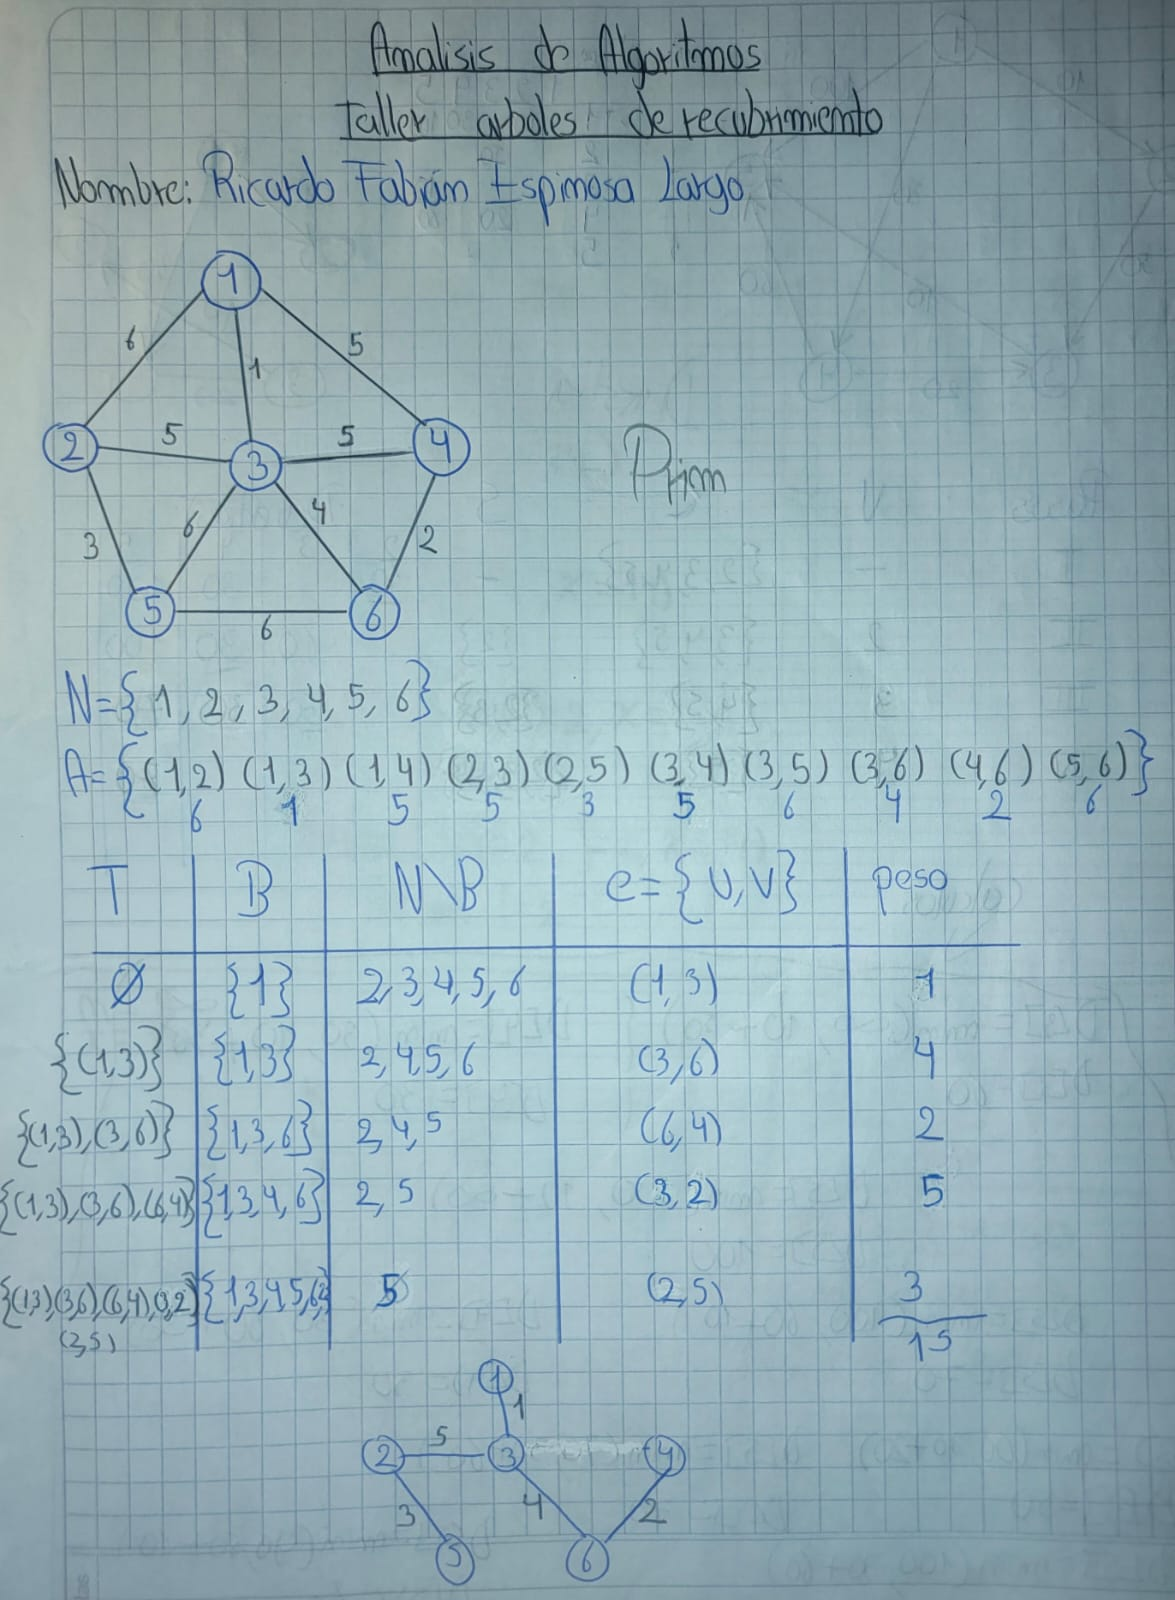 Analisis de Algoritmos
Taller arboles de recubrimiento
Nombre: Ricardo Fabián Espinosa Largo
1
6 1 5
2 5 3 5 4
Prim
3 6 4 2
5 6 6
N={1, 2, 3, 4, 5, 6}
A={(1,2) (1,3) (1,4) (2,3) (2,5) (3,4) (3,5) (3,6) (4,6) (5,6)}
6 1 5 5 3 5 6 4 2 6
T B N\B e={U,V} peso
∅ {1} 2,3,4,5,6 (1,3) 1
{(1,3)} {1,3} 2,4,5,6 (3,6) 4
{(1,3),(3,6)} {1,3,6} 2,4,5 (6,4) 2
{(1,3),(3,6),(6,4)} {1,3,4,6} 2,5 (3,2) 5
{(1,3)(3,6),(6,4),(3,2) {1,3,4,5,6,2} 5 (2,5) 3
(2,5) 15
1
1
2 5 3 4
3 4 2
5 6